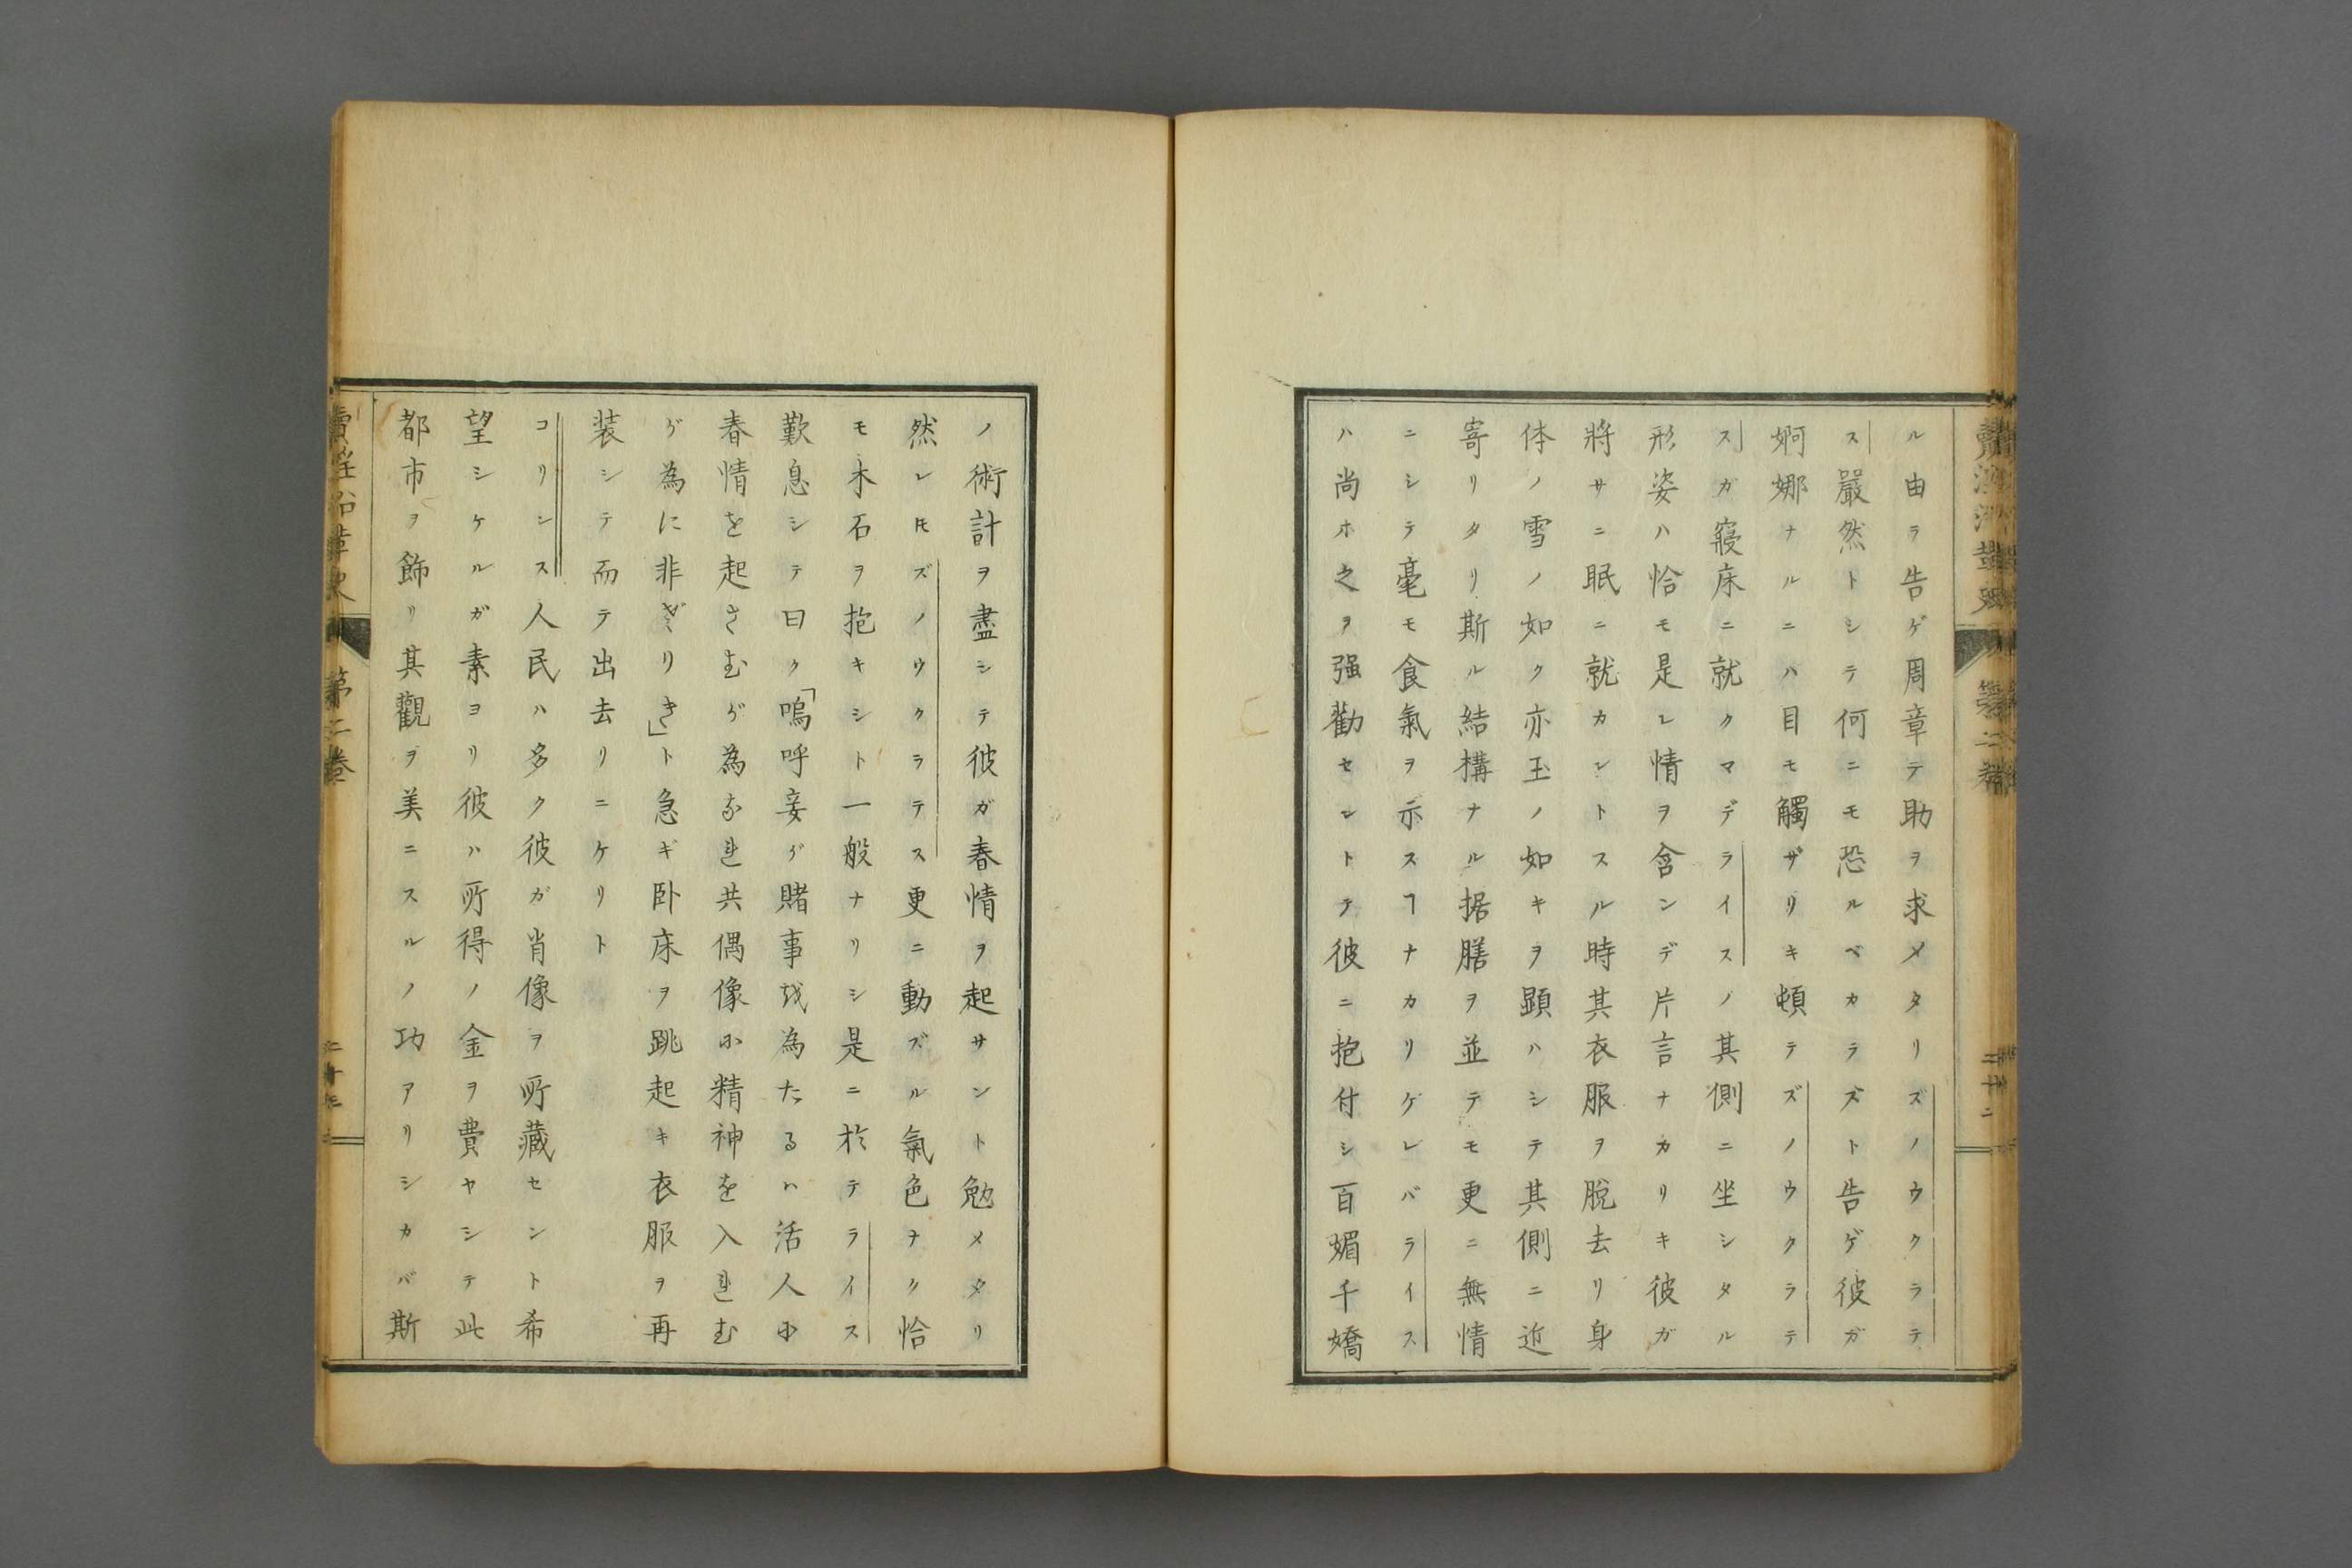 ル由ラ告ゲ周章テ助ヲ求メタリズノウクラテ
ス嚴然トシテ何ニモ恐ルベカラズト告ゲ彼ガ
婀娜ナルニハ目モ觸ザリキ頓テズノウクラテ
スガ寢床ニ就クマデライスノ其側ニ坐シタル
形姿ハ恰モ是レ情ヲ含ンデ片言ナカリキ彼ガ
將サニ眠ニ就カントスル時其衣服ヲ脫去リ身
体ノ雪ノ如ク亦玉ノ如キヲ顕ハシテ其側ニ近
寄リタリ斯ル結構ナル据膳ヲ並テモ更ニ無情
ニシテ毫モ食氣ヲ示スヿナカリゲレバライス
ハ尚ホ之ヲ强勸セントテ彼ニ抱付シ百媚千嬌
ノ術計ヲ盡シテ彼ガ春情ヲ起サント勉メタリ
然レ𪜈ズノウクラテス更ニ動ズル氣色ナク恰
モ木石ヲ抱キシト一般ナリシ是ニ於テライス
歎息シテ曰ク「嗚呼妾ゲ賭事越為たるハ活人に
春情を起さむが為なれ共偶像に精神を入れむ
が為に非ざりき」ト急ギ臥床ヲ跳起キ衣服ヲ再
装シテ而テ出去リニケリト
コリンス人民ハ多ク彼ガ肖像ヲ所藏セント希
望シケルガ素ヨリ彼ハ所得ノ金ヲ費ヤシテ此
都市ヲ飾リ其觀ヲ美ニスルノ功アリシカバ斯
第二巻